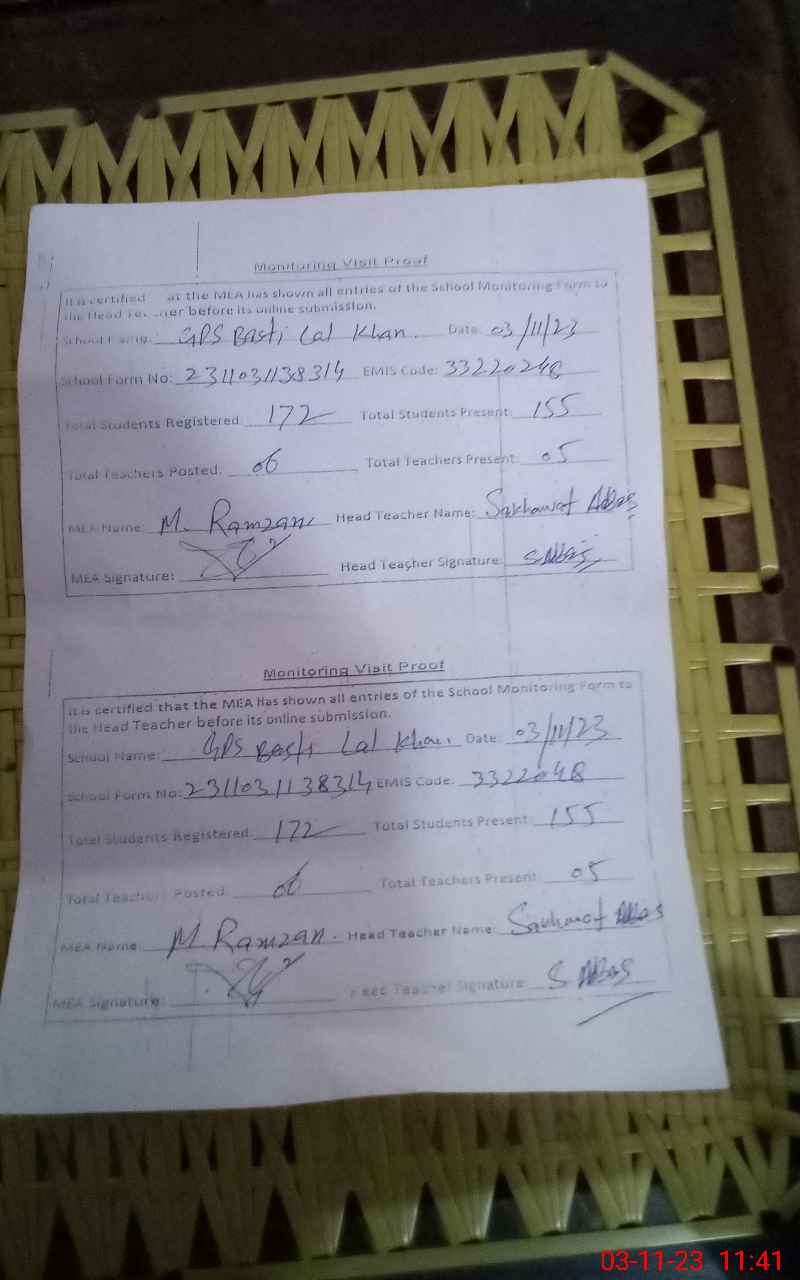 Monitoring Visit Proof
It is certified at the MEA has shown all entries of the School Monitoring Form to
the Head before its online submission.
School GPS Basti Lal Khan Date: 03/11/23
School Form No: 2311031138314 EMIS Code: 33220248
Total Students Registered 172 Total Students Present: 155
Total Teachers Posted: 06 Total Teachers Present: 05
MEA Name: M. Ramzan Head Teacher Name: Sakhawat Abbas
MEA Signature: Head Teacher Signature: S Abbas
Monitoring Visit Proof
It is certified that the MEA Has shown all entries of the School Monitoring Form to
the Head Teacher before its online submission.
School Name: GPS Basti Lal Khan. Date: 03/11/23
School Form No: 2311031138314 EMIS Code:
Total Students Registered: 172 Total Students Present: 155
Total Teachers Posted: 06 Total Teachers Present: 05
MEA Name: M Ramzan. Head Teacher Name: Sakhawat Abbas
MEA Signature: Teacher Signature: S Abbas
03-11-23 11:41